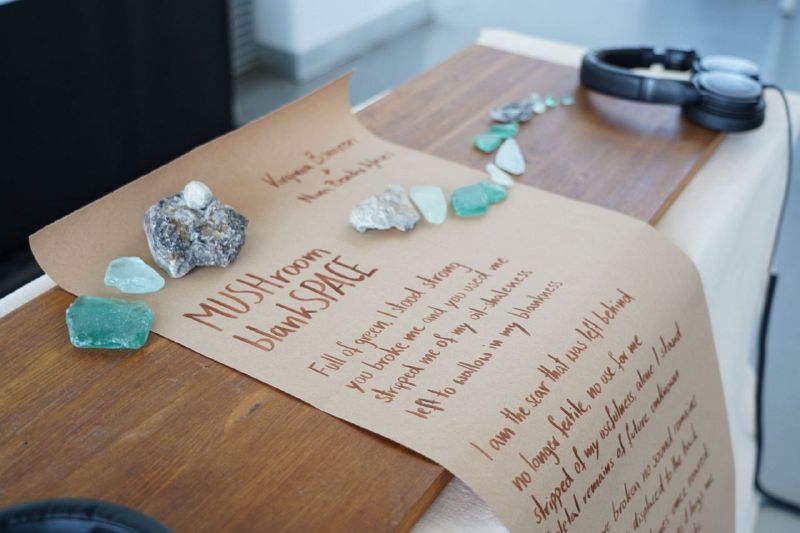 Virginia
&
MUSHroom
blankSPACE
Full of green, I stood strong
you broke me and you used me
stripped me of my all-
left to wallow in my blankness
I am the scar that was left behind
no longer fertile, no use for me
stripped of my usefulness, alone I stand
remains of future unknown
broken no sound remains
displaced to the
once roared
me